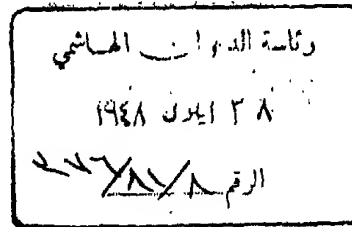 رئاسة الديوان الهاشمي
٢٨ ايلول ١٩٤٨
الرقم